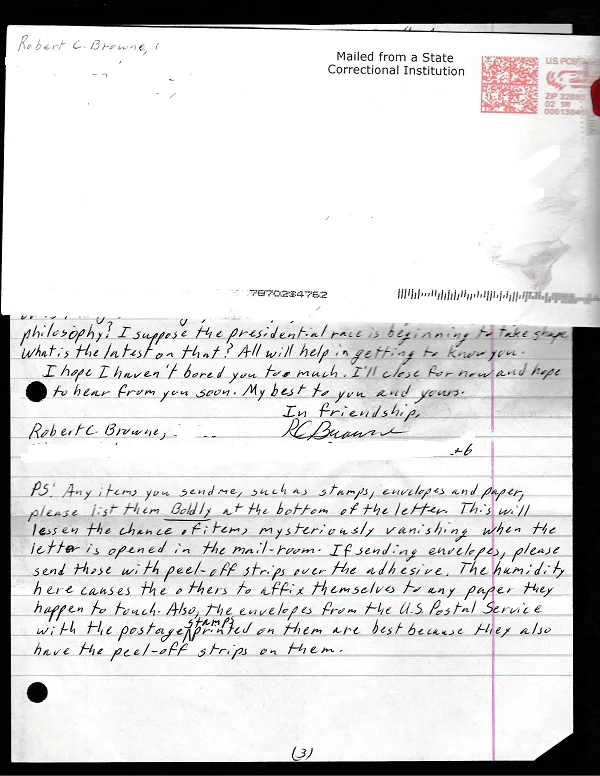 Robert C. Browne,
Mailed from a State
Correctional Institution
U.S. POS
ZIP 3208
02 1W
0001384
7870234762
philosophy? I suppose the presidential race is beginning to take shape
What is the latest on that? All will help in getting to know you.
I hope I haven't bored you too much. I'll close for now and hope
to hear from you soon. My best to you and yours.
In friendship,
Robert C. Browne,
RC Browne
PS: Any items you send me, such as stamps, envelopes and paper,
please list them Boldly at the bottom of the letter. This will
lessen the chance of items mysteriously vanishing when the
letter is opened in the mail-room. If sending envelopes, please
send those with peel-off strips over the adhesive. The humidity
here causes the others to affix themselves to any paper they
happen to touch. Also, the envelopes from the U.S. Postal Service
with the postage stamps printed on them are best because they also
have the peel-off strips on them.
(3)